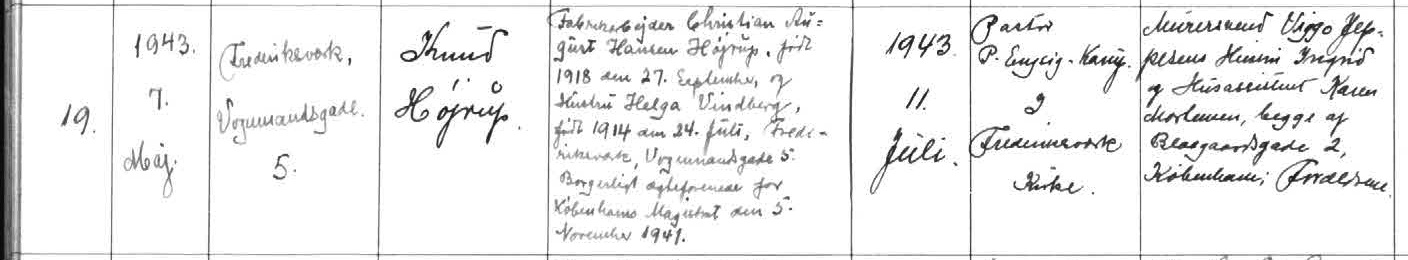 19.
1943.
7.
Maj.
Frederiksværk,
Vognmandsgade.
5.
Knud
Højrup.
Fabriksarbejder Christian Au=
gust Hansen Højrup, født
1918 den 27. September, og
Hustru Helga Vindberg,
født 1914 den 24. Juli, Frede-
riksværk, Vognmandsgade 5.
Borgerligt ægteforenede for
Københavns Magistrat den 5.
November 1941.
1943.
11.
Juli.
Pastor
P.
I
Frederiksværk
Kirke.
Murersvend Viggo Jep=
pesens Hustru Ingrid
og Husassistent Karen
Mortensen, begge af
2,
København; Forældrene.